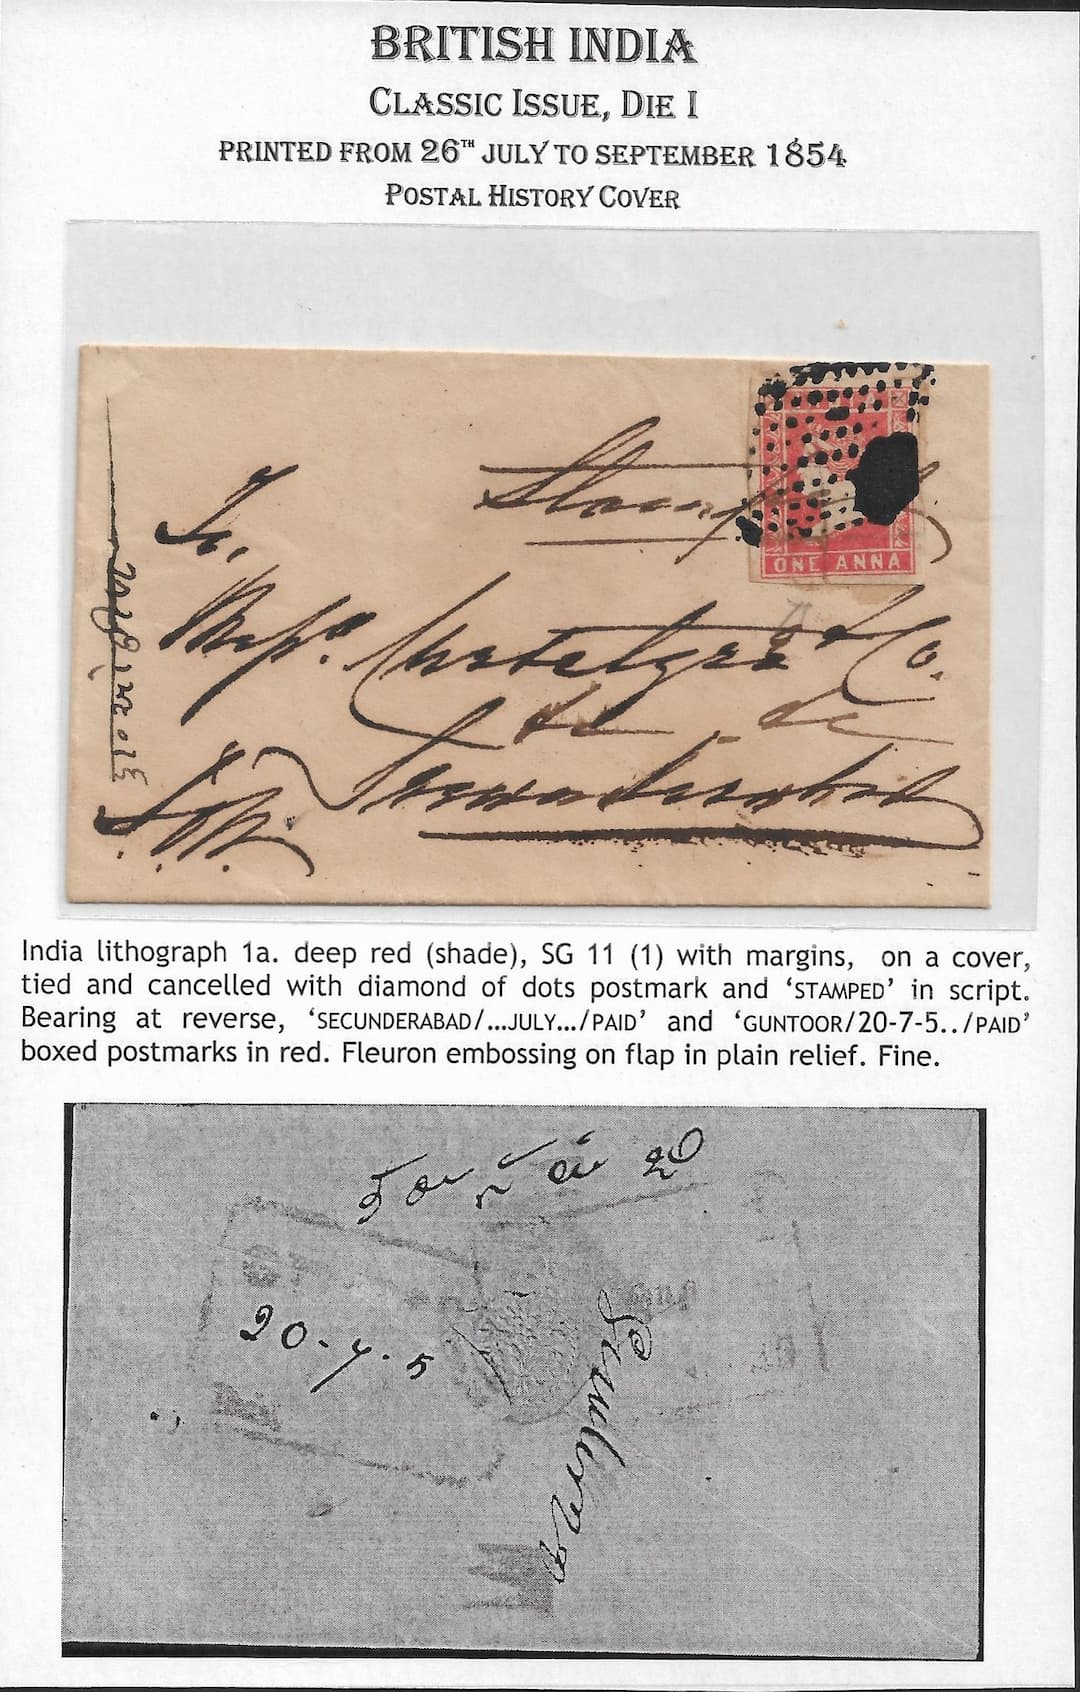 BRITISH INDIA
CLASSIC ISSUE, DIE I
PRINTED FROM 26TH JULY TO SEPTEMBER 1854
POSTAL HISTORY COVER
Stamped
ONE ANNA
To,
& Co.
Secunderabad
India lithograph 1a. deep red (shade), SG 11 (1) with margins, on a cover,
tied and cancelled with diamond of dots postmark and ‘STAMPED’ in script.
Bearing at reverse, ‘SECUNDERABAD/...JULY.../PAID’ and ‘GUNTOOR/20-7-5../PAID’
boxed postmarks in red. Fleuron embossing on flap in plain relief. Fine.
20-7-5